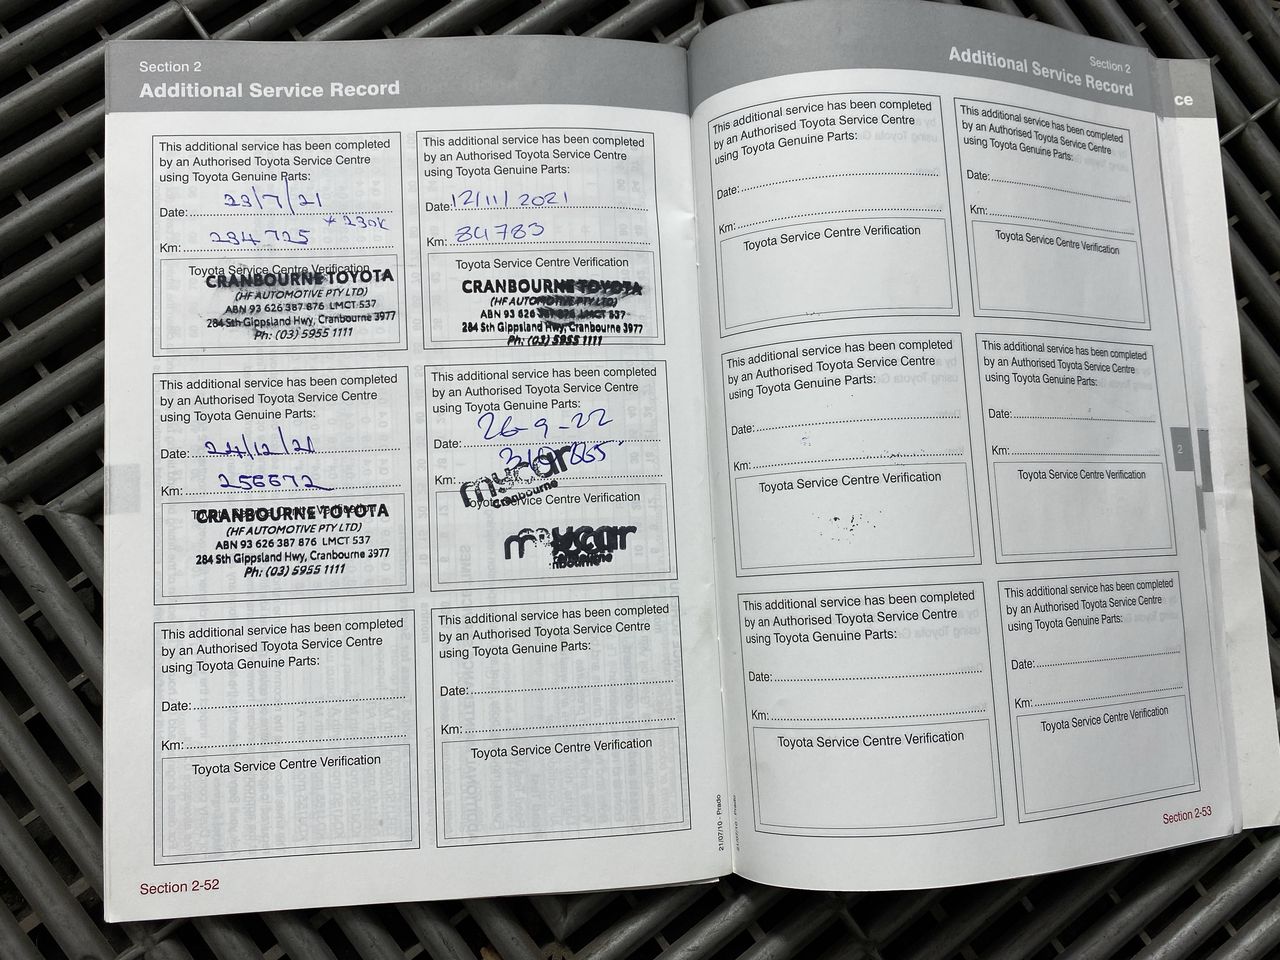 Section 2
Additional Service Record
This additional service has been completed
by an Authorised Toyota Service Centre
using Toyota Genuine Parts:
Date: 23/7/21
* 230K
Km: 234 725
Toyota Service Centre Verification
CRANBOURNE TOYOTA
(HF AUTOMOTIVE PTY LTD)
ABN 93 626 387 876 LMCT 537
284 Sth Gippsland Hwy, Cranbourne 3977
Ph: (03) 5955 1111
This additional service has been completed
by an Authorised Toyota Service Centre
using Toyota Genuine Parts:
Date: 12/11/2021
Km: 84783
Toyota Service Centre Verification
CRANBOURNE TOYOTA
(HF AUTOMOTIVE PTY LTD)
ABN 93 626 387 876 LMCT 537
284 Sth Gippsland Hwy, Cranbourne 3977
Ph: (03) 5955 1111
This additional service has been completed
by an Authorised Toyota Service Centre
using Toyota Genuine Parts:
Date: 24/12/21
Km: 256672
Toyota Service Centre Verification
CRANBOURNE TOYOTA
(HF AUTOMOTIVE PTY LTD)
ABN 93 626 387 876 LMCT 537
284 Sth Gippsland Hwy, Cranbourne 3977
Ph: (03) 5955 1111
This additional service has been completed
by an Authorised Toyota Service Centre
using Toyota Genuine Parts:
Date: 26-9-22
Km:
mycar
Cranbourne
Toyota Service Centre Verification
mycar
This additional service has been completed
by an Authorised Toyota Service Centre
using Toyota Genuine Parts:
Date:
Km:
Toyota Service Centre Verification
This additional service has been completed
by an Authorised Toyota Service Centre
using Toyota Genuine Parts:
Date:
Km:
Toyota Service Centre Verification
Section 2-52
21/07/10 - Prado
Section 2
Additional Service Record
This additional service has been completed
by an Authorised Toyota Service Centre
using Toyota Genuine Parts:
Date:
Km:
Toyota Service Centre Verification
This additional service has been completed
by an Authorised Toyota Service Centre
using Toyota Genuine Parts:
Date:
Km:
Toyota Service Centre Verification
This additional service has been completed
by an Authorised Toyota Service Centre
using Toyota Genuine Parts:
Date:
Km:
Toyota Service Centre Verification
This additional service has been completed
by an Authorised Toyota Service Centre
using Toyota Genuine Parts:
Date:
Km:
Toyota Service Centre Verification
This additional service has been completed
by an Authorised Toyota Service Centre
using Toyota Genuine Parts:
Date:
Km:
Toyota Service Centre Verification
This additional service has been completed
by an Authorised Toyota Service Centre
using Toyota Genuine Parts:
Date:
Km:
Toyota Service Centre Verification
21/07/10 - Prado
Section 2-53
ce
2